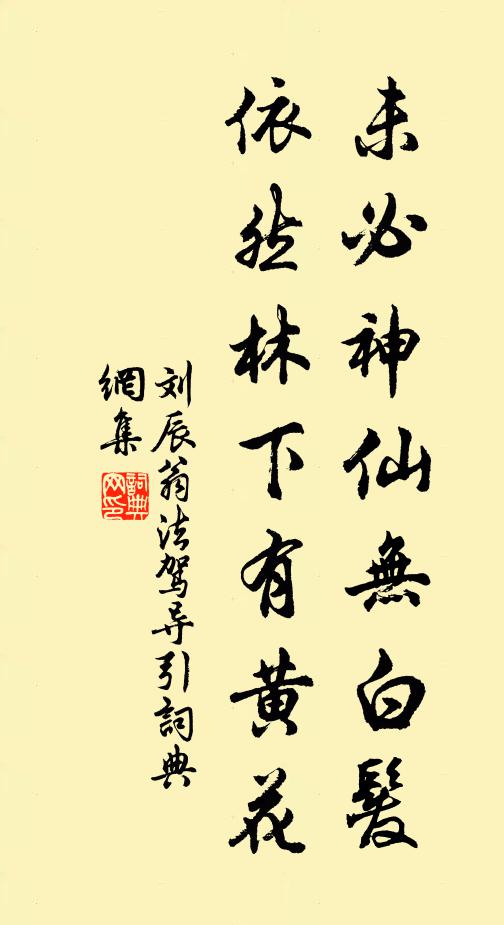 未必神仙無白髮
依然林下有黄花
刘辰翁法驾导引詞典
網集
詞典
网印